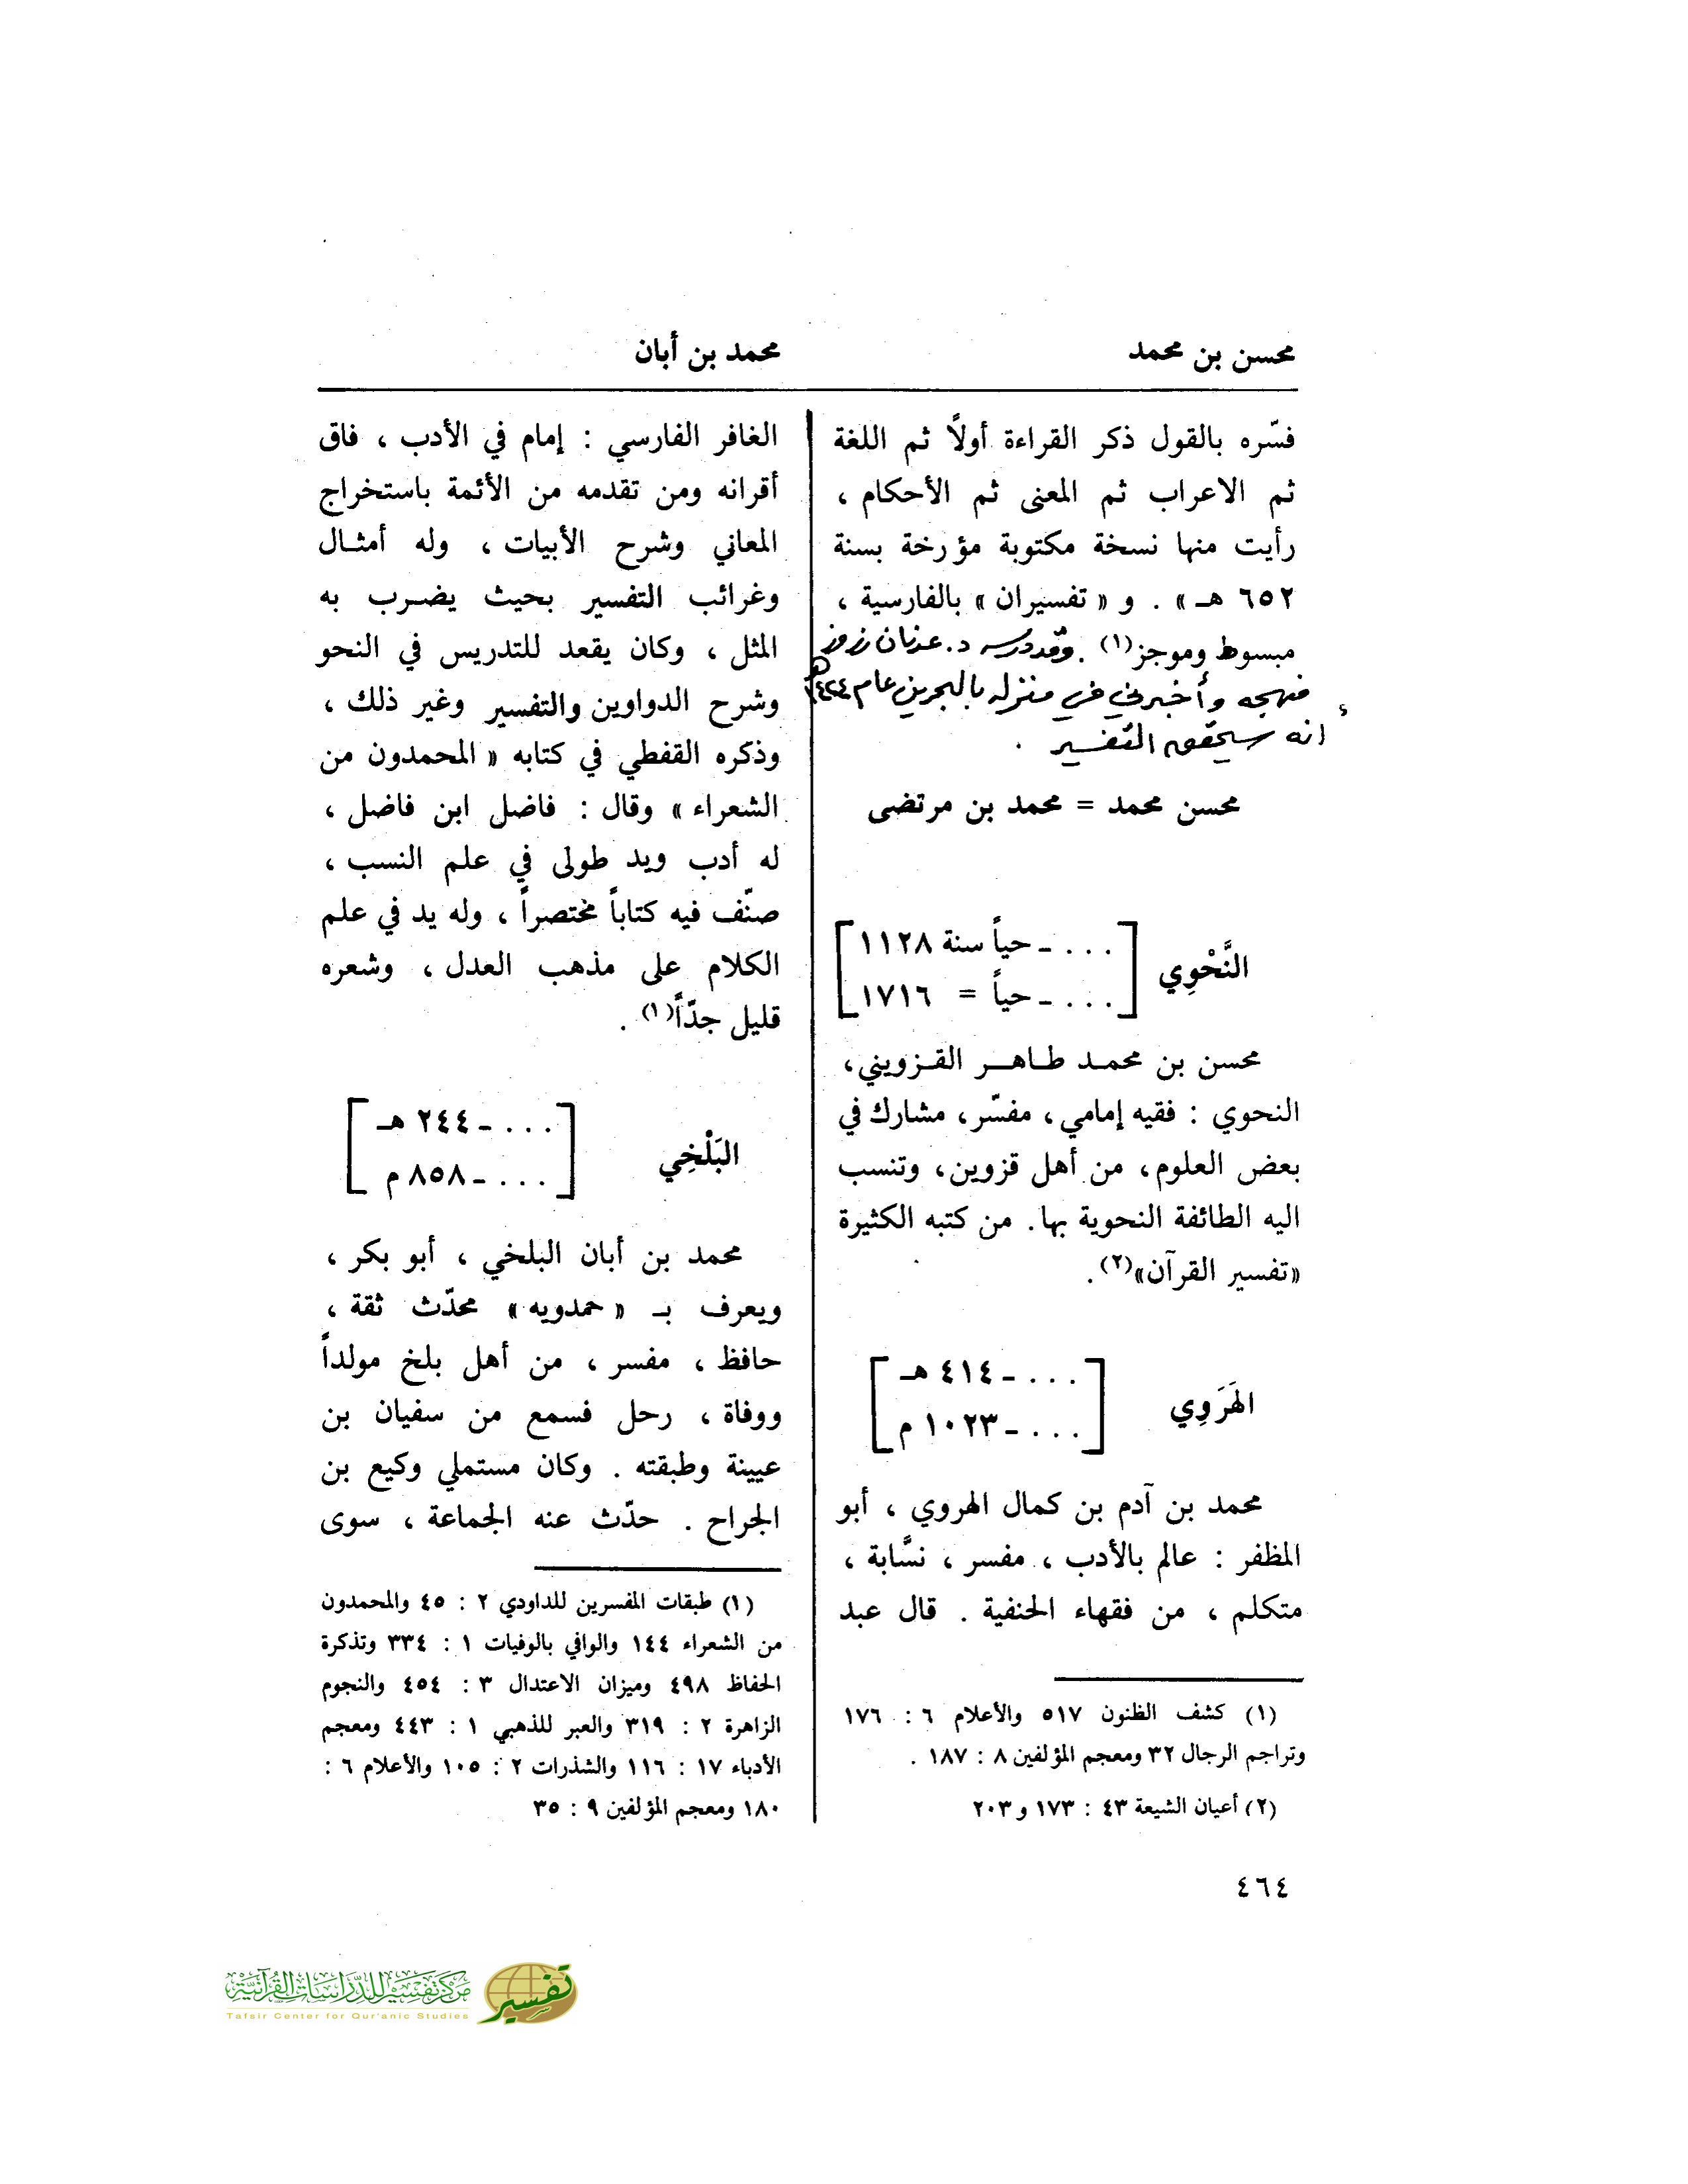 محسن بن محمد
محمد بن أبان
فسّره بالقول ذكر القراءة أولاً ثم اللغة
ثم الاعراب ثم المعنى ثم الأحكام ،
رأيت منها نسخة مكتوبة مؤرخة بسنة
٦٥٢ هـ » . و « تفسيران » بالفارسية ،
مبسوط وموجز(١) . وقد درسه د. عدنان زرزور
منهجه وأخبرني في منزله بالبحرين عام ١٤٢٤هـ
انه سيحقق التفسير .
محسن محمد = محمد بن مرتضى
النَّحْوِي
[ . . . ـ حياً سنة ١١٢٨ ]
[ . . . ـ حياً = ١٧١٦ ]
محسن بن محمد طاهر القزويني،
النحوي : فقيه إمامي، مفسّر، مشارك في
بعض العلوم، من أهل قزوين، وتنسب
اليه الطائفة النحوية بها. من كتبه الكثيرة
«تفسير القرآن»(٢).
الهَرَوِي
[ . . . ـ ٤١٤ هـ ]
[ . . . ـ ١٠٢٣ م ]
محمد بن آدم بن كمال الهروي ، أبو
المظفر : عالم بالأدب ، مفسر ، نسَّابة ،
متكلم ، من فقهاء الحنفية . قال عبد
(١) كشف الظنون ٥١٧ والأعلام ٦ : ١٧٦
وتراجم الرجال ٣٢ ومعجم المؤلفين ٨ : ١٨٧ .
(٢) أعيان الشيعة ٤٣ : ١٧٣ و ٢٠٣
الغافر الفارسي : إمام في الأدب ، فاق
أقرانه ومن تقدمه من الأئمة باستخراج
المعاني وشرح الأبيات ، وله أمثال
وغرائب التفسير بحيث يضرب به
المثل ، وكان يقعد للتدريس في النحو
وشرح الدواوين والتفسير وغير ذلك ،
وذكره القفطي في كتابه « المحمدون من
الشعراء » وقال : فاضل ابن فاضل ،
له أدب ويد طولى في علم النسب ،
صنّف فيه كتاباً مختصراً ، وله يد في علم
الكلام على مذهب العدل ، وشعره
قليل جدّاً(١) .
البَلْخِي
[ . . . ـ ٢٤٤ هـ ]
[ . . . ـ ٨٥٨ م ]
محمد بن أبان البلخي ، أبو بكر ،
ويعرف بـ « حمدويه » محدّث ثقة ،
حافظ ، مفسر ، من أهل بلخ مولداً
ووفاة ، رحل فسمع من سفيان بن
عيينة وطبقته . وكان مستملي وكيع بن
الجراح . حدّث عنه الجماعة ، سوى
(١) طبقات المفسرين للداودي ٢ : ٤٥ والمحمدون
من الشعراء ١٤٤ والوافي بالوفيات ١ : ٣٣٤ وتذكرة
الحفاظ ٤٩٨ وميزان الاعتدال ٣ : ٤٥٤ والنجوم
الزاهرة ٢ : ٣١٩ والعبر للذهبي ١ : ٤٤٣ ومعجم
الأدباء ١٧ : ١١٦ والشذرات ٢ : ١٠٥ والأعلام ٦ :
١٨٠ ومعجم المؤلفين ٩ : ٣٥
٤٦٤
مركز تفسير للدراسات القرآنية
Tafsir Center for Qur'anic Studies
تفسير